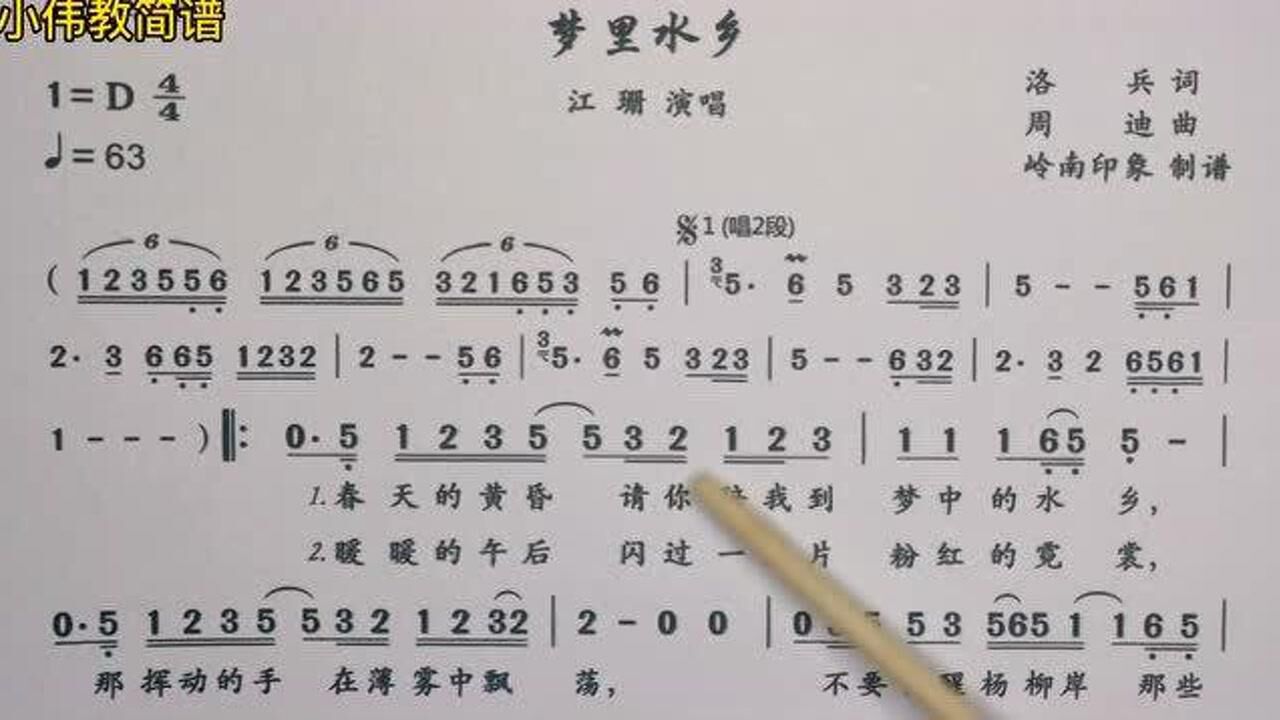 小伟教简谱
梦里水乡
1=D 4/4
江珊 演唱
洛 兵 词
周 迪 曲
♩=63
岭南印象 制谱
𝄋1(唱2段)
6 6 6
( 1 2 3 5 5 6 1 2 3 5 6 5 3 2 1 6 5 3 5 6 | 3 5· 6 5 3 2 3 | 5 - - 5 6 1 |
2· 3 6 6 5 1 2 3 2 | 2 - - 5 6 | 3 5· 6 5 3 2 3 | 5 - - 6 3 2 | 2· 3 2 6 5 6 1 |
1 - - - ) ‖: 0· 5 1 2 3 5 5 3 2 1 2 3 | 1 1 1 6 5 5 - |
1.春 天 的 黄 昏 请 你 我 到 梦 中 的 水 乡,
2.暖 暖 的 午 后 闪 过 一 片 粉 红 的 霓 裳,
0· 5 1 2 3 5 5 3 2 1 2 3 2 | 2 - 0 0 | 0 5 3 5 6 5 1 1 6 5 |
那 挥 动 的 手 在 薄 雾 中 飘 荡, 不 要 醒 杨 柳 岸 那 些